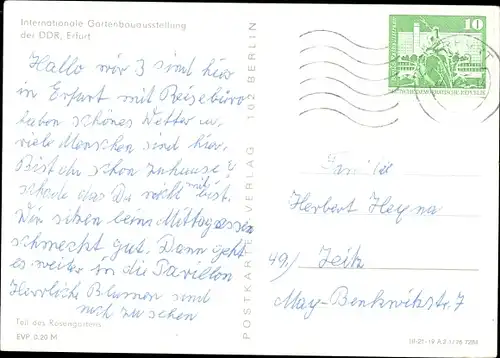 Internationale Gartenbauausstellung
der DDR, Erfurt
Hallo wir 3 sind hier
in Erfurt mit Reisebüro
haben schönes Wetter u.
viele Menschen sind hier.
Bist du schon zuhause
schade das Du nicht mit bist.
Wir sitzen beim Mittagessen
schmeckt gut. Dann geht
es weiter in die Pavillon
Herrliche Blumen sind
noch zu sehen
Teil des Rosengartens
EVP 0,20 M
POSTKARTENVERLAG 102 BERLIN
10
DEUTSCHE DEMOKRATISCHE REPUBLIK
Familie
Herbert Heyna
49./ Zeitz
May-Benkwitzstr. 7
III-21-19 A 2 1/76